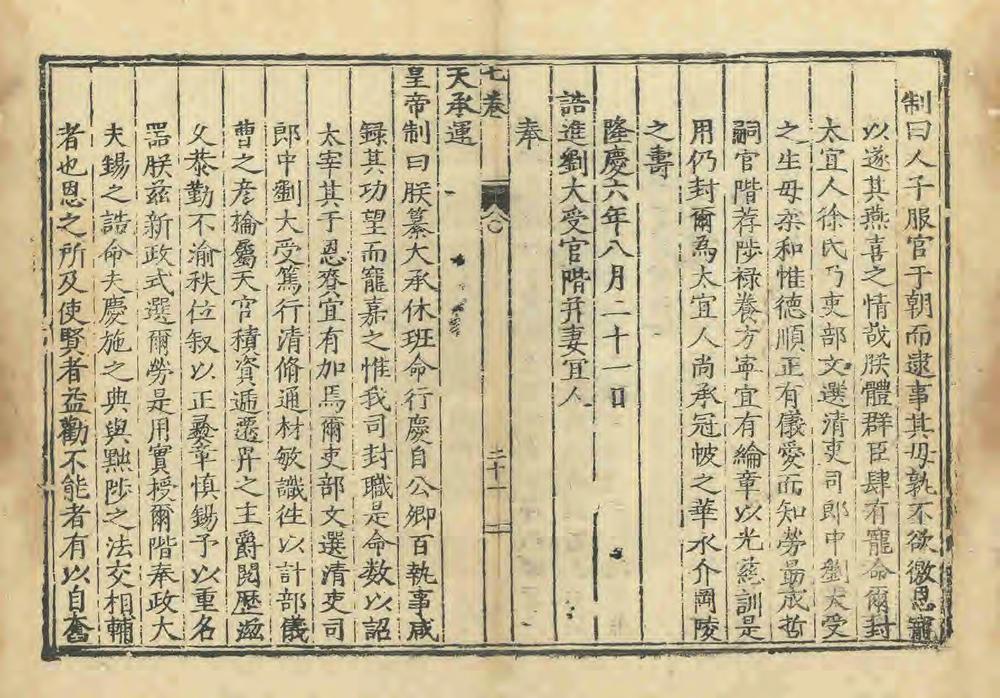 制曰人子服官于朝而逮事其母孰不欲徼恩寵
以遂其燕喜之情哉朕體群臣肆有寵命爾封
太宜人徐氏乃吏部文選清吏司郎中劉大受
之生母柔和惟德順正有儀愛而知勞勗成哲
嗣官階荐陟祿養方寧宜有綸章以光慈訓是
用仍封爾為太宜人尚承冠帔之華永介岡陵
之壽
隆慶六年八月二十一日
誥進劉大受官階并妻宜人
奉
七卷
二十一
天承運
皇帝制曰朕纂大承休班命行慶自公卿百執事咸
録其功望而寵嘉之惟我司封職是命数以詔
太宰其于恩賚宜有加焉爾吏部文選清吏司
郎中劉大受篤行清脩通材敏識徃以計部儀
曹之彦掄屬天官積資遞遷畀之主爵閱歴滋
乆恭勤不渝秩位叙以正彝章慎錫予以重名
噐朕兹新政式選爾勞是用實授爾階奉政大
夫錫之誥命夫慶施之典與黜陟之法交相輔
者也恩之所及使賢者益勸不能者有以自奮